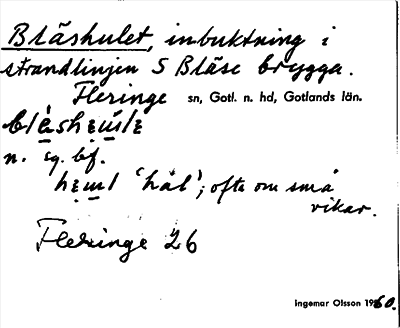 Bläshulet, inbuktning i
strandlinjen S Bläse brygga.
Fleringe sn, Gotl. n. hd, Gotlands län.
n. sg. bf.
'hål'; ofta om små
vikar.
Fleringe 26
Ingemar Olsson 1960.